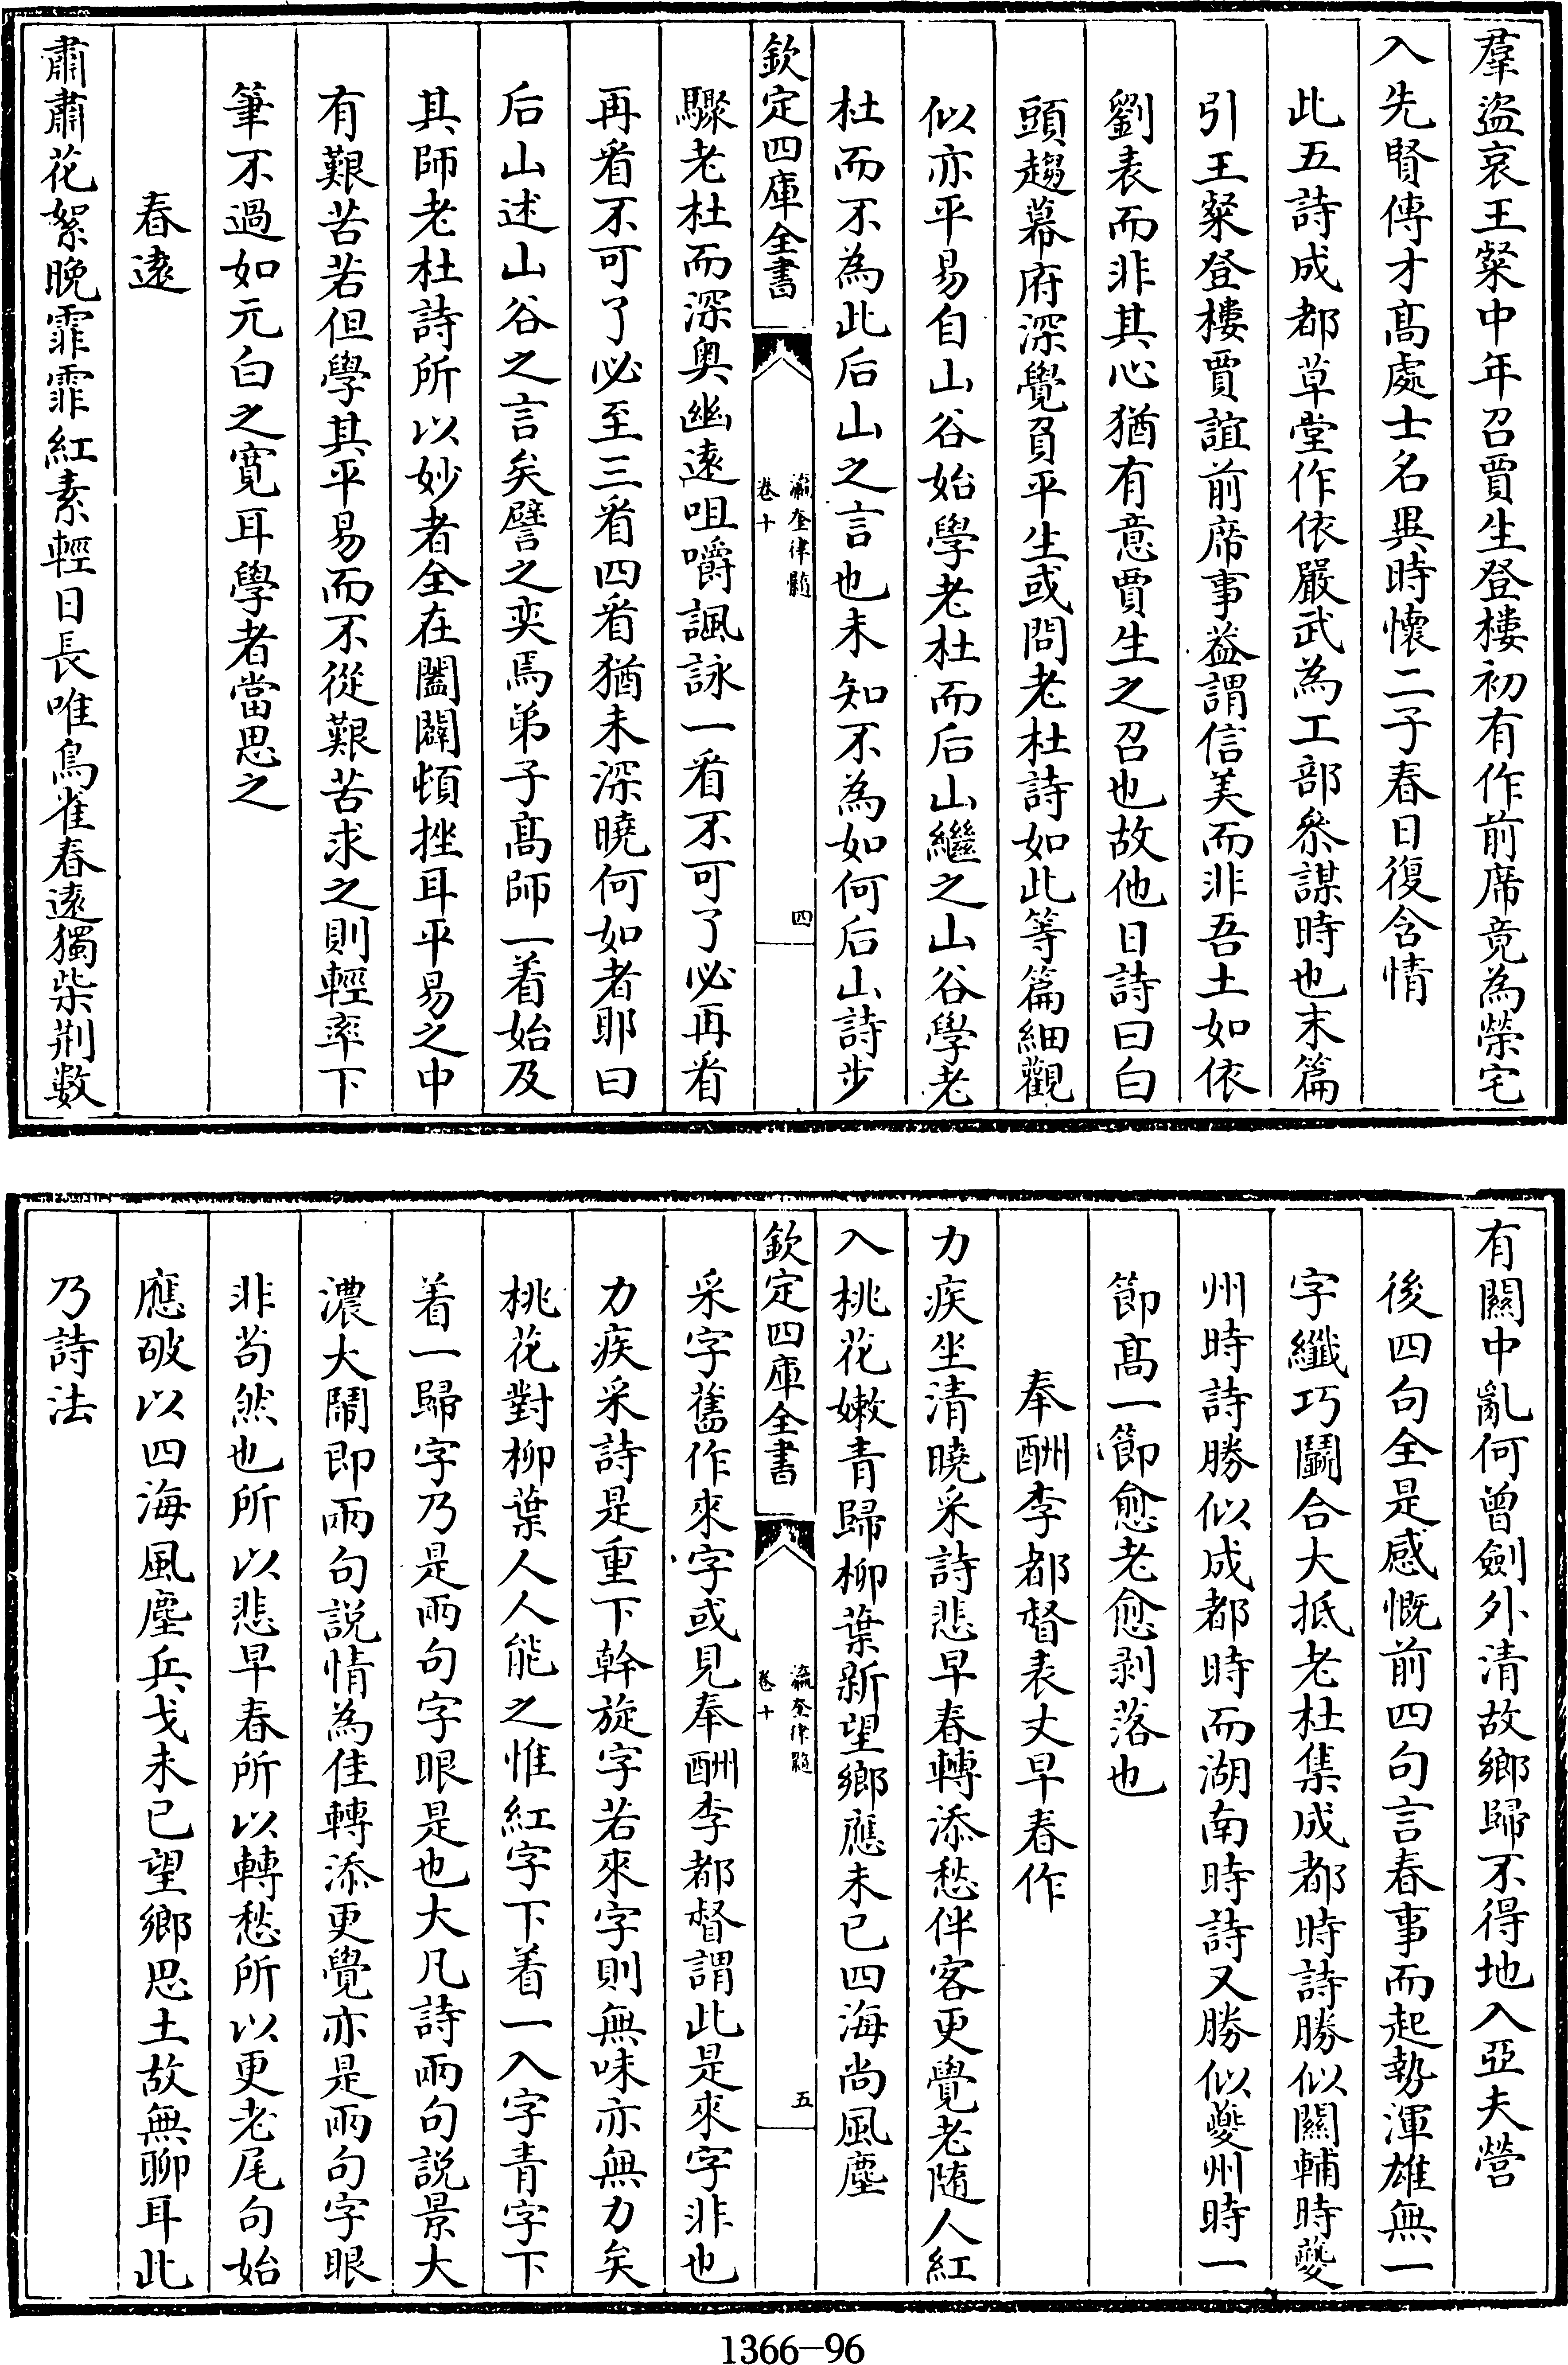 羣盜哀王粲中年召賈生登樓初有作前席竟為榮宅
入先賢傳才髙處士名異時懷二子春日復含情
此五詩成都草堂作依嚴武為工部叅謀時也末篇
引王粲登樓賈誼前席事益謂信美而非吾土如依
劉表而非其心猶有意賈生之召也故他日詩曰白
頭趨幕府深覺負平生或問老杜詩如此等篇細觀
似亦平易自山谷始學老杜而后山繼之山谷學老
杜而不為此后山之言也未知不為如何后山詩步
欽定四庫全書
瀛奎律髓
卷十
四
驟老杜而深奥幽逺咀嚼諷詠一㸔不可了必再㸔
再㸔不可了必至三㸔四㸔猶未深曉何如者耶曰
后山述山谷之言矣譬之奕焉弟子髙師一着始及
其師老杜詩所以妙者全在闔闢頓挫耳平易之中
有艱苦若但學其平易而不從艱苦求之則輕率下
筆不過如元白之寛耳學者當思之
春逺
肅肅花絮晚霏霏紅素輕日長唯鳥雀春逺獨柴荆數
有闗中亂何曾劍外清故鄉歸不得地入亞夫營
後四句全是感慨前四句言春事而起勢渾雄無一
字纖巧鬭合大抵老杜集成都時詩勝似闗輔時夔
州時詩勝似成都時而湖南時詩又勝似夔州時一
節髙一節愈老愈剥落也
奉酬李都督表丈早春作
力疾坐清曉采詩悲早春轉添愁伴客更覺老隨人紅
入桃花嫩青歸柳葉新望鄉應未已四海尚風塵
欽定四庫全書
瀛奎律髓
卷十
五
采字舊作來字或見奉酬李都督謂此是來字非也
力疾采詩是重下幹旋字若來字則無味亦無力矣
桃花對柳葉人人能之惟紅字下着一入字青字下
着一歸字乃是兩句字眼是也大凡詩兩句説景大
濃大鬧即兩句説情為佳轉添更覺亦是兩句字眼
非茍然也所以悲早春所以轉愁所以更老尾句始
應破以四海風塵兵戈未已望鄉思土故無聊耳此
乃詩法
1366-96